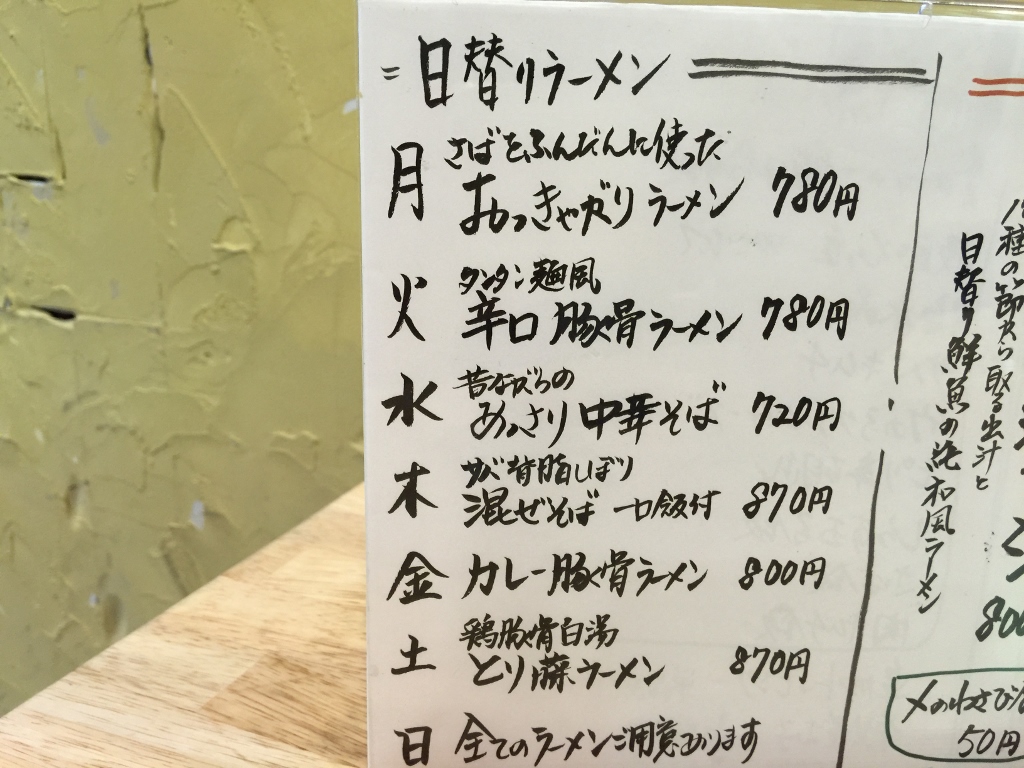 =日替りラーメン
月 さばをふんだんに使った
おっきゃがりラーメン 780円
火 タンタン麺風
辛口豚骨ラーメン 780円
水 昔ながらの
あっさり中華そば 720円
木 サバ背脂しぼり
混ぜそば 一口飯付 870円
金 カレー豚骨ラーメン 800円
土 鶏豚骨白湯
とり藤ラーメン 870円
日 全てのラーメンご用意あります
種の節から取る出汁と
日替り鮮魚の純和風ラーメン
800
〆のわさび
50円